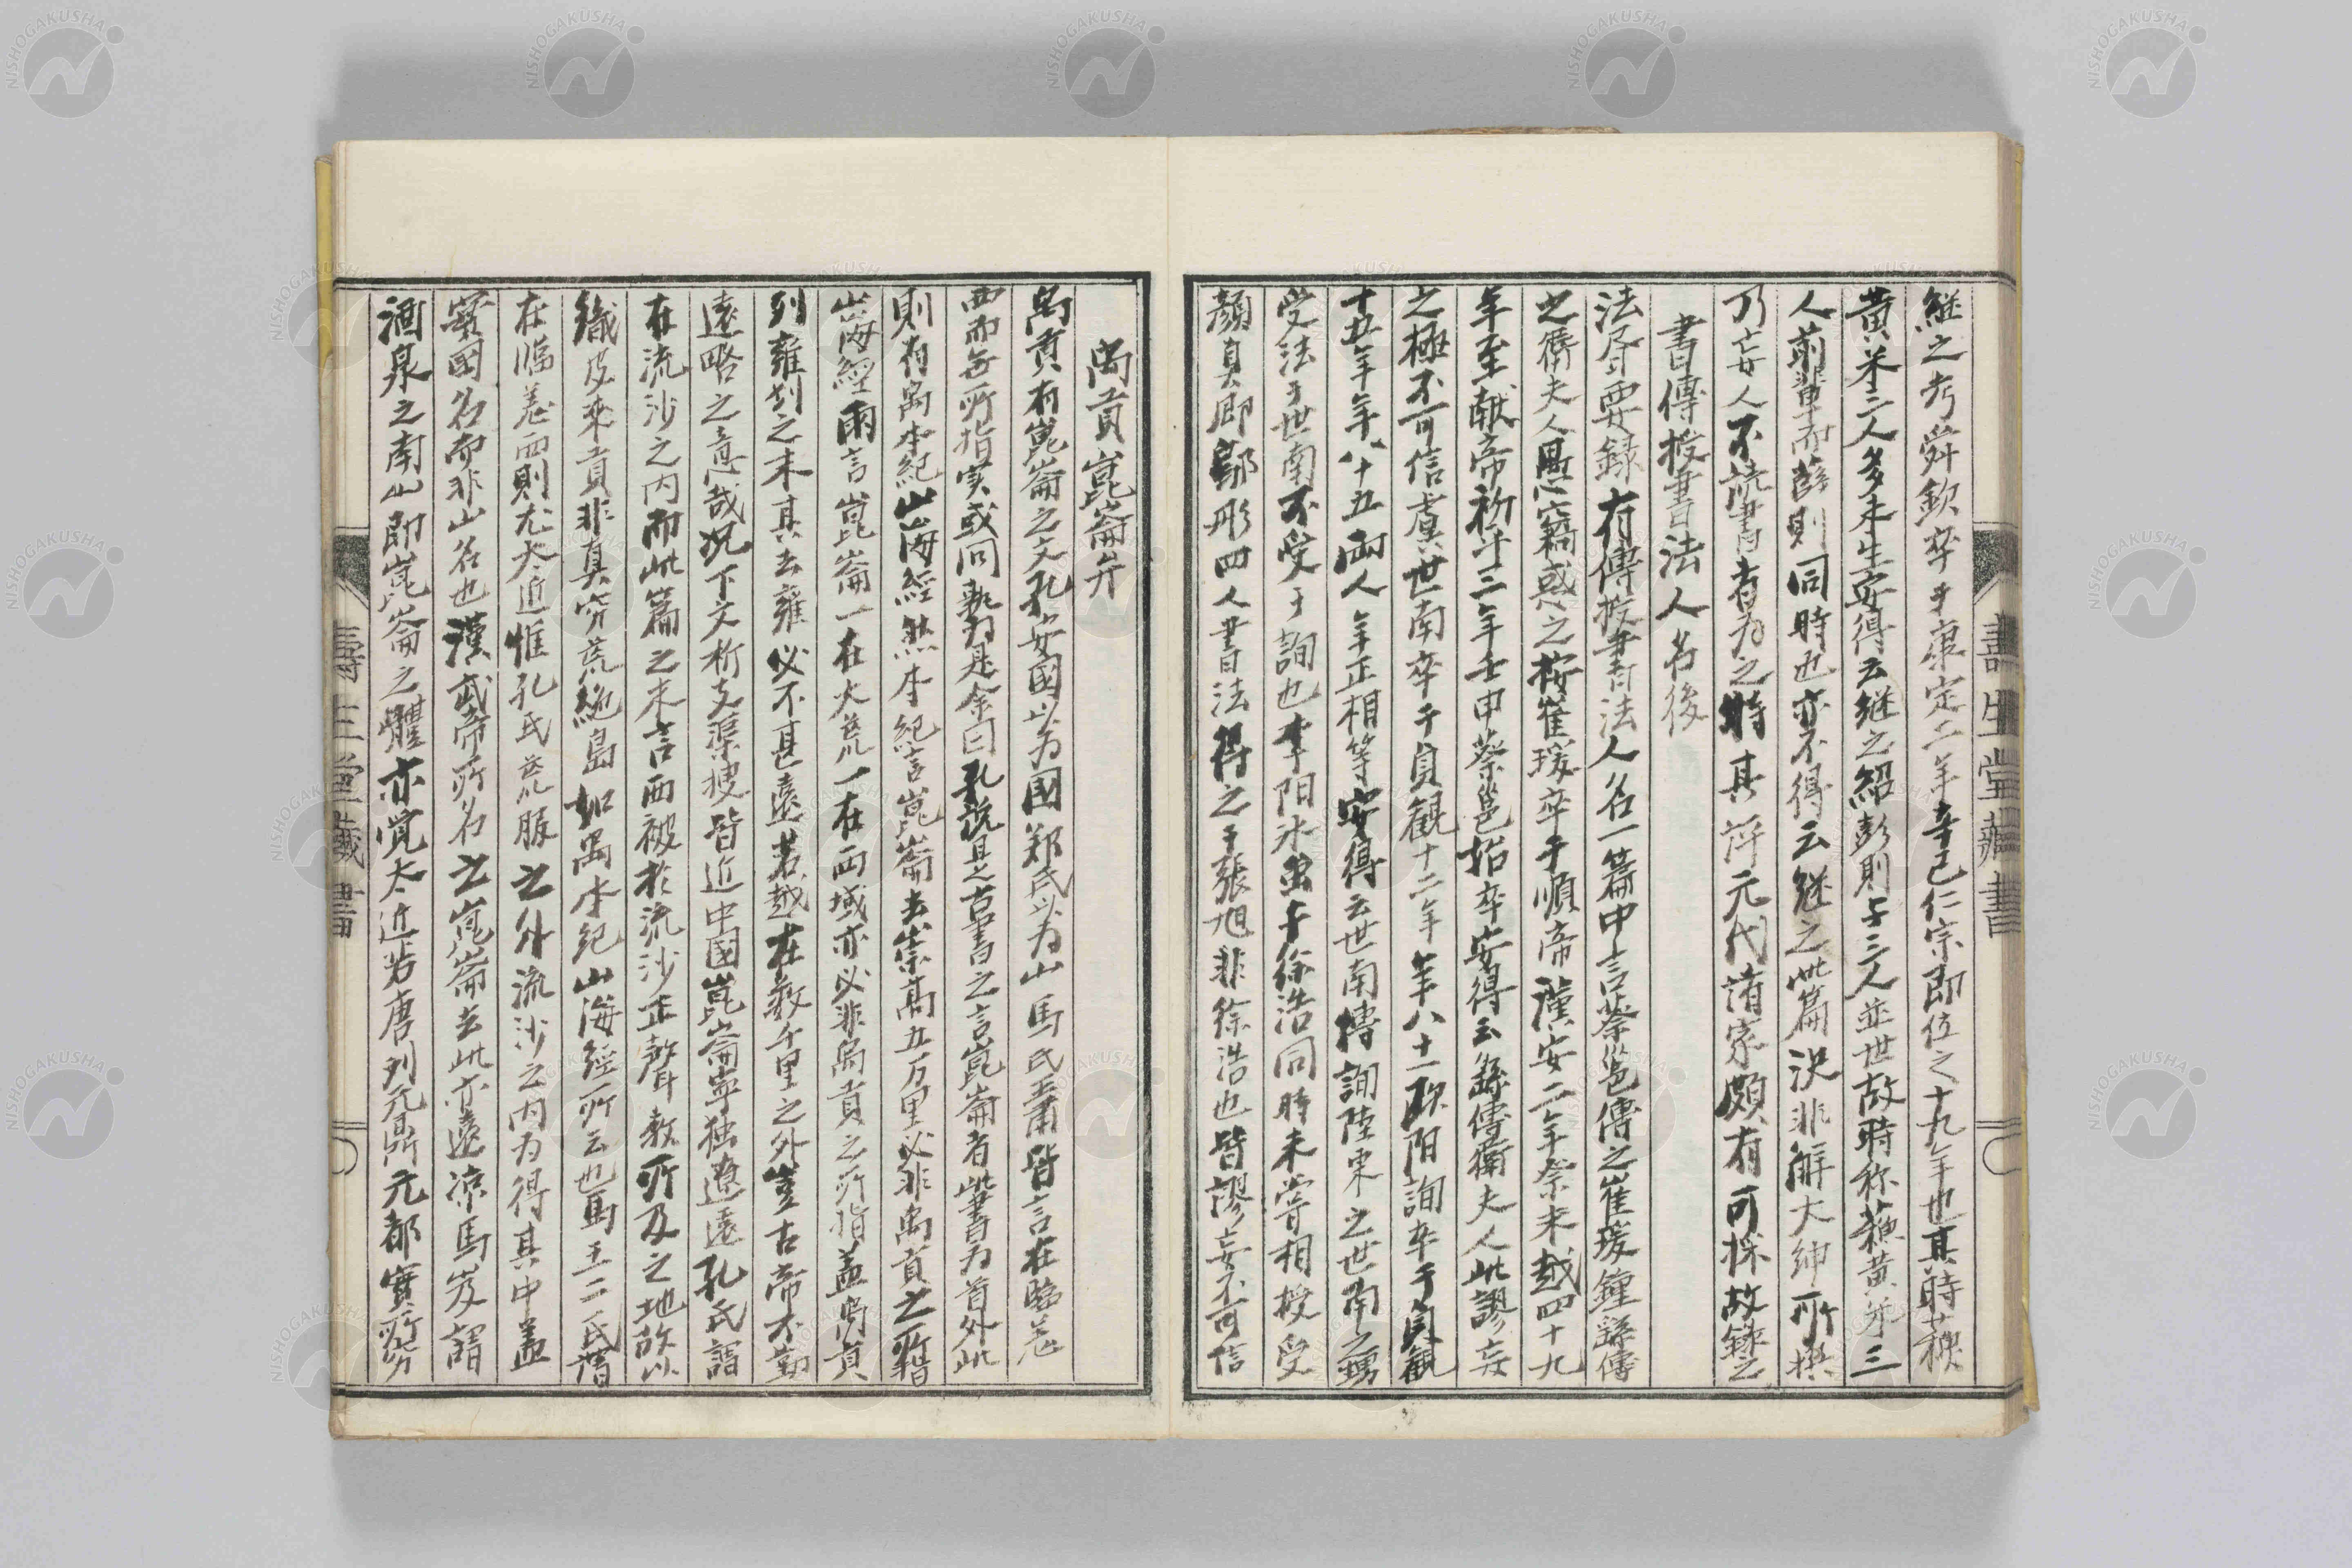 継之考舜欽卒于康定二年辛巳仁宗即位之十九年也其時蘓
黄米二人多未生安得云継之紹彭則与三人並世故時称蘓黄米三
人前輩而薛則同時也亦不得云継之此篇決非解大紳所撰
乃妄人不読書者为之時其評元代諸家頗有可採故錄之
書傳授書法人名後
法書要録有傳授書法人名一篇中言蔡邕傳之崔瑗鍾繇傳
之衛夫人愚竊惑之按崔瑗卒于順帝漢安二年癸未越四十九
年至献帝初平三年壬申蔡邕始卒安得云繇傳衛夫人此謬妄
之極不可信虞世南卒于貞観十二年年八十一欧陽詢卒于貞観
十五年年八十五両人年正相等安得云世南傳詢陸柬之世南之甥
受法于世南不受于詢也李阳冰虽与徐浩同時未嘗相授受
顔真卿鄔彤四人書法得之于張旭非徐浩也皆謬妄不可信
禹貢崑崙弁
禹貢有崑崙之文孔安國以为國郑氏以为山馬氏王肅皆言在臨羌
西而无所指実或问孰为是余曰孔説是之古書之言崑崙者此書为首外此
則有禹本紀山海經然本紀言崑崙去崇高五万里必非禹貢之所指
山海經兩言崑崙一在大荒一在西域亦必非禹貢之所指盖禹貢
列雍州之末其去雍必不甚遠若越在数千里之外豈古帝不勤
遠略之意哉况下文析支渠搜皆近中國崑崙寧独遼遠孔氏謂
在流沙之内而此篇之末言西被於流沙正聲教所及之地故以
織皮来貢非真穷荒絶島如禹本紀山海經所云也馬王二氏謂
在臨羌西則尤太近惟孔氏荒服之外流沙之内为得其中盖
實國名而非山名也漢武帝所名之崑崙去此亦遠凉馬岌謂
酒泉之南山即崑崙之體亦覚太近若唐刘元鼎元都實所穷
壽生堂藏書
壽生堂藏書